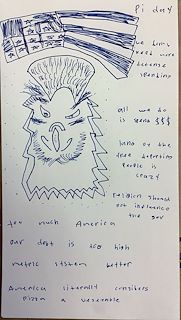 Pi day
we dont
need more
defense
spending
all we do
is spend $$$
land of the
free deporting
people is
crazy
religion should
not influence
the gov
too much America
our debt is too high
metric system better
America literally considers
pizza a vegetable